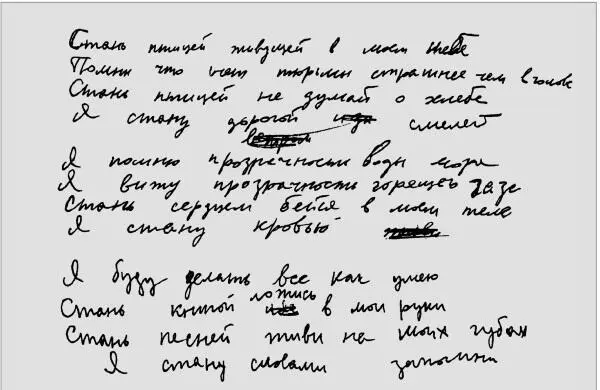 Стань птицей живущей в моем небе
Помни что нет тюрьмы страшнее чем в голове
Стань птицей не думай о хлебе
Я стану дорогой смелей
Я помню прозрачность воды моря
Я вижу прозрачность горящего газа
Стань сердцем бейся в моем теле
Я стану кровью
Я буду делать все как умею
Стань книгой ложись в мои руки
Стань песней живи на моих губах
Я стану словами